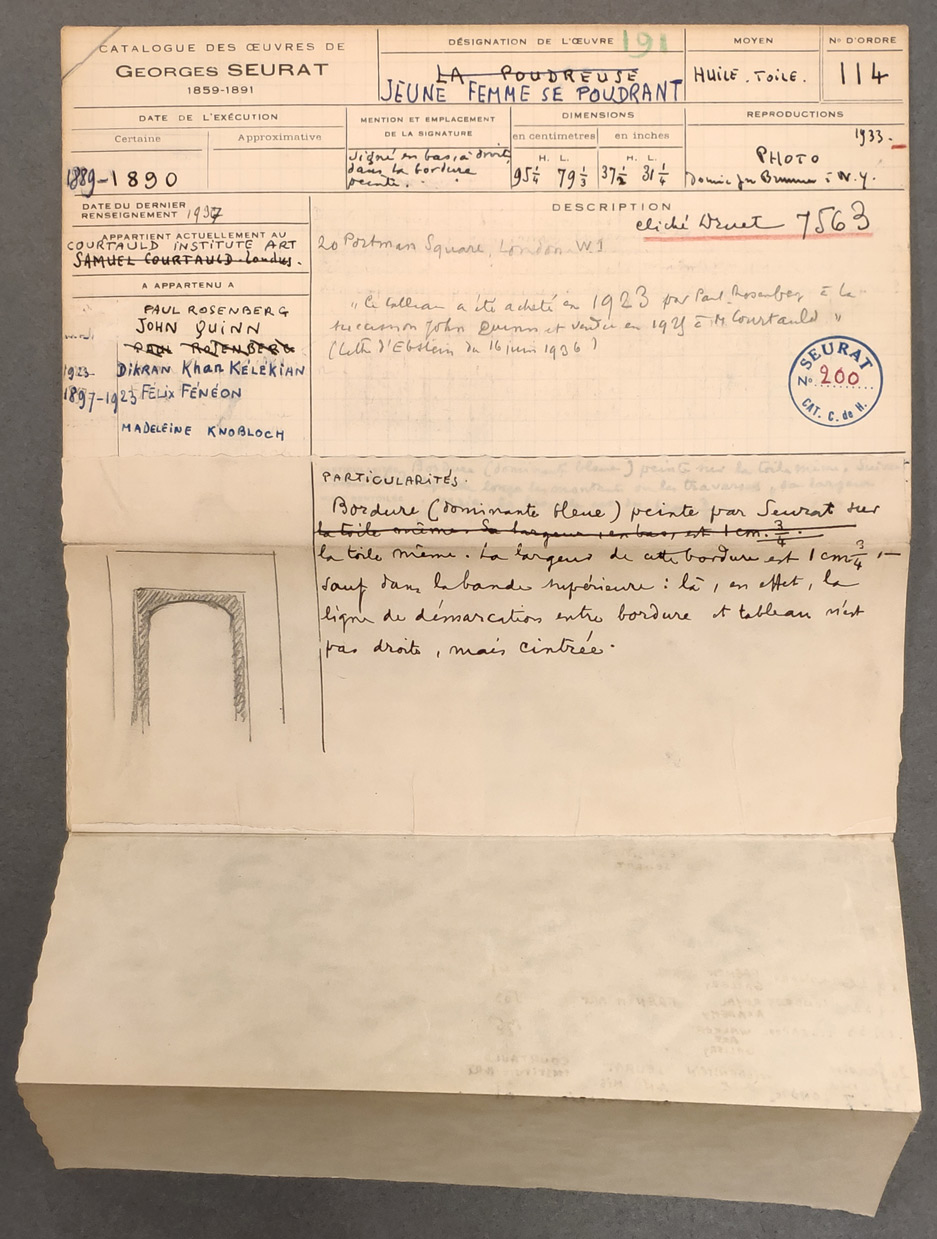 CATALOGUE DES ŒUVRES DE
GEORGES SEURAT
1859-1891
DÉSIGNATION DE L'ŒUVRE 191
LA POUDREUSE
JEUNE FEMME SE POUDRANT
MOYEN
HUILE. TOILE.
No D'ORDRE
114
DATE DE L'EXÉCUTION
Certaine
Approximative
1889-1890
MENTION ET EMPLACEMENT
DE LA SIGNATURE
Signé en bas, à droite,
dans la bordure
peinte.
DIMENSIONS
en centimètres
en inches
H. L.
H. L.
95 1/4 79 1/3
37 1/2 31 1/4
REPRODUCTIONS
1933-
PHOTO
Brummer à N.Y.
DATE DU DERNIER
RENSEIGNEMENT 1937
APPARTIENT ACTUELLEMENT AU
COURTAULD INSTITUTE ART
SAMUEL COURTAULD. Londres.
A APPARTENU A
PAUL ROSENBERG
JOHN QUINN
PAUL ROSENBERG
1923- DIKRAN Khan KÉLÉKIAN
1897-1923 FÉLIX FÉNÉON
MADELEINE KNOBLOCH
DESCRIPTION
cliché Druet 7563
20 Portman Square, London W1
"Ce tableau a été acheté en 1923 par Paul Rosenberg à la
succession John Quinn et vendu en 1925 à M Courtauld"
(Lettre d'Ebstein du 16 juin 1936)
SEURAT
No. 200
CAT. C. de H.
PARTICULARITÉS.
Bordure (dominante bleue) peinte par Seurat sur
la toile même. Sa largeur, en bas, est 1 cm. 3/4.
la toile même. La largeur de cette bordure est 1 cm 3/4,—
sauf dans la bande supérieure : là, en effet, la
ligne de démarcation entre bordure et tableau n'est
pas droite, mais cintrée.